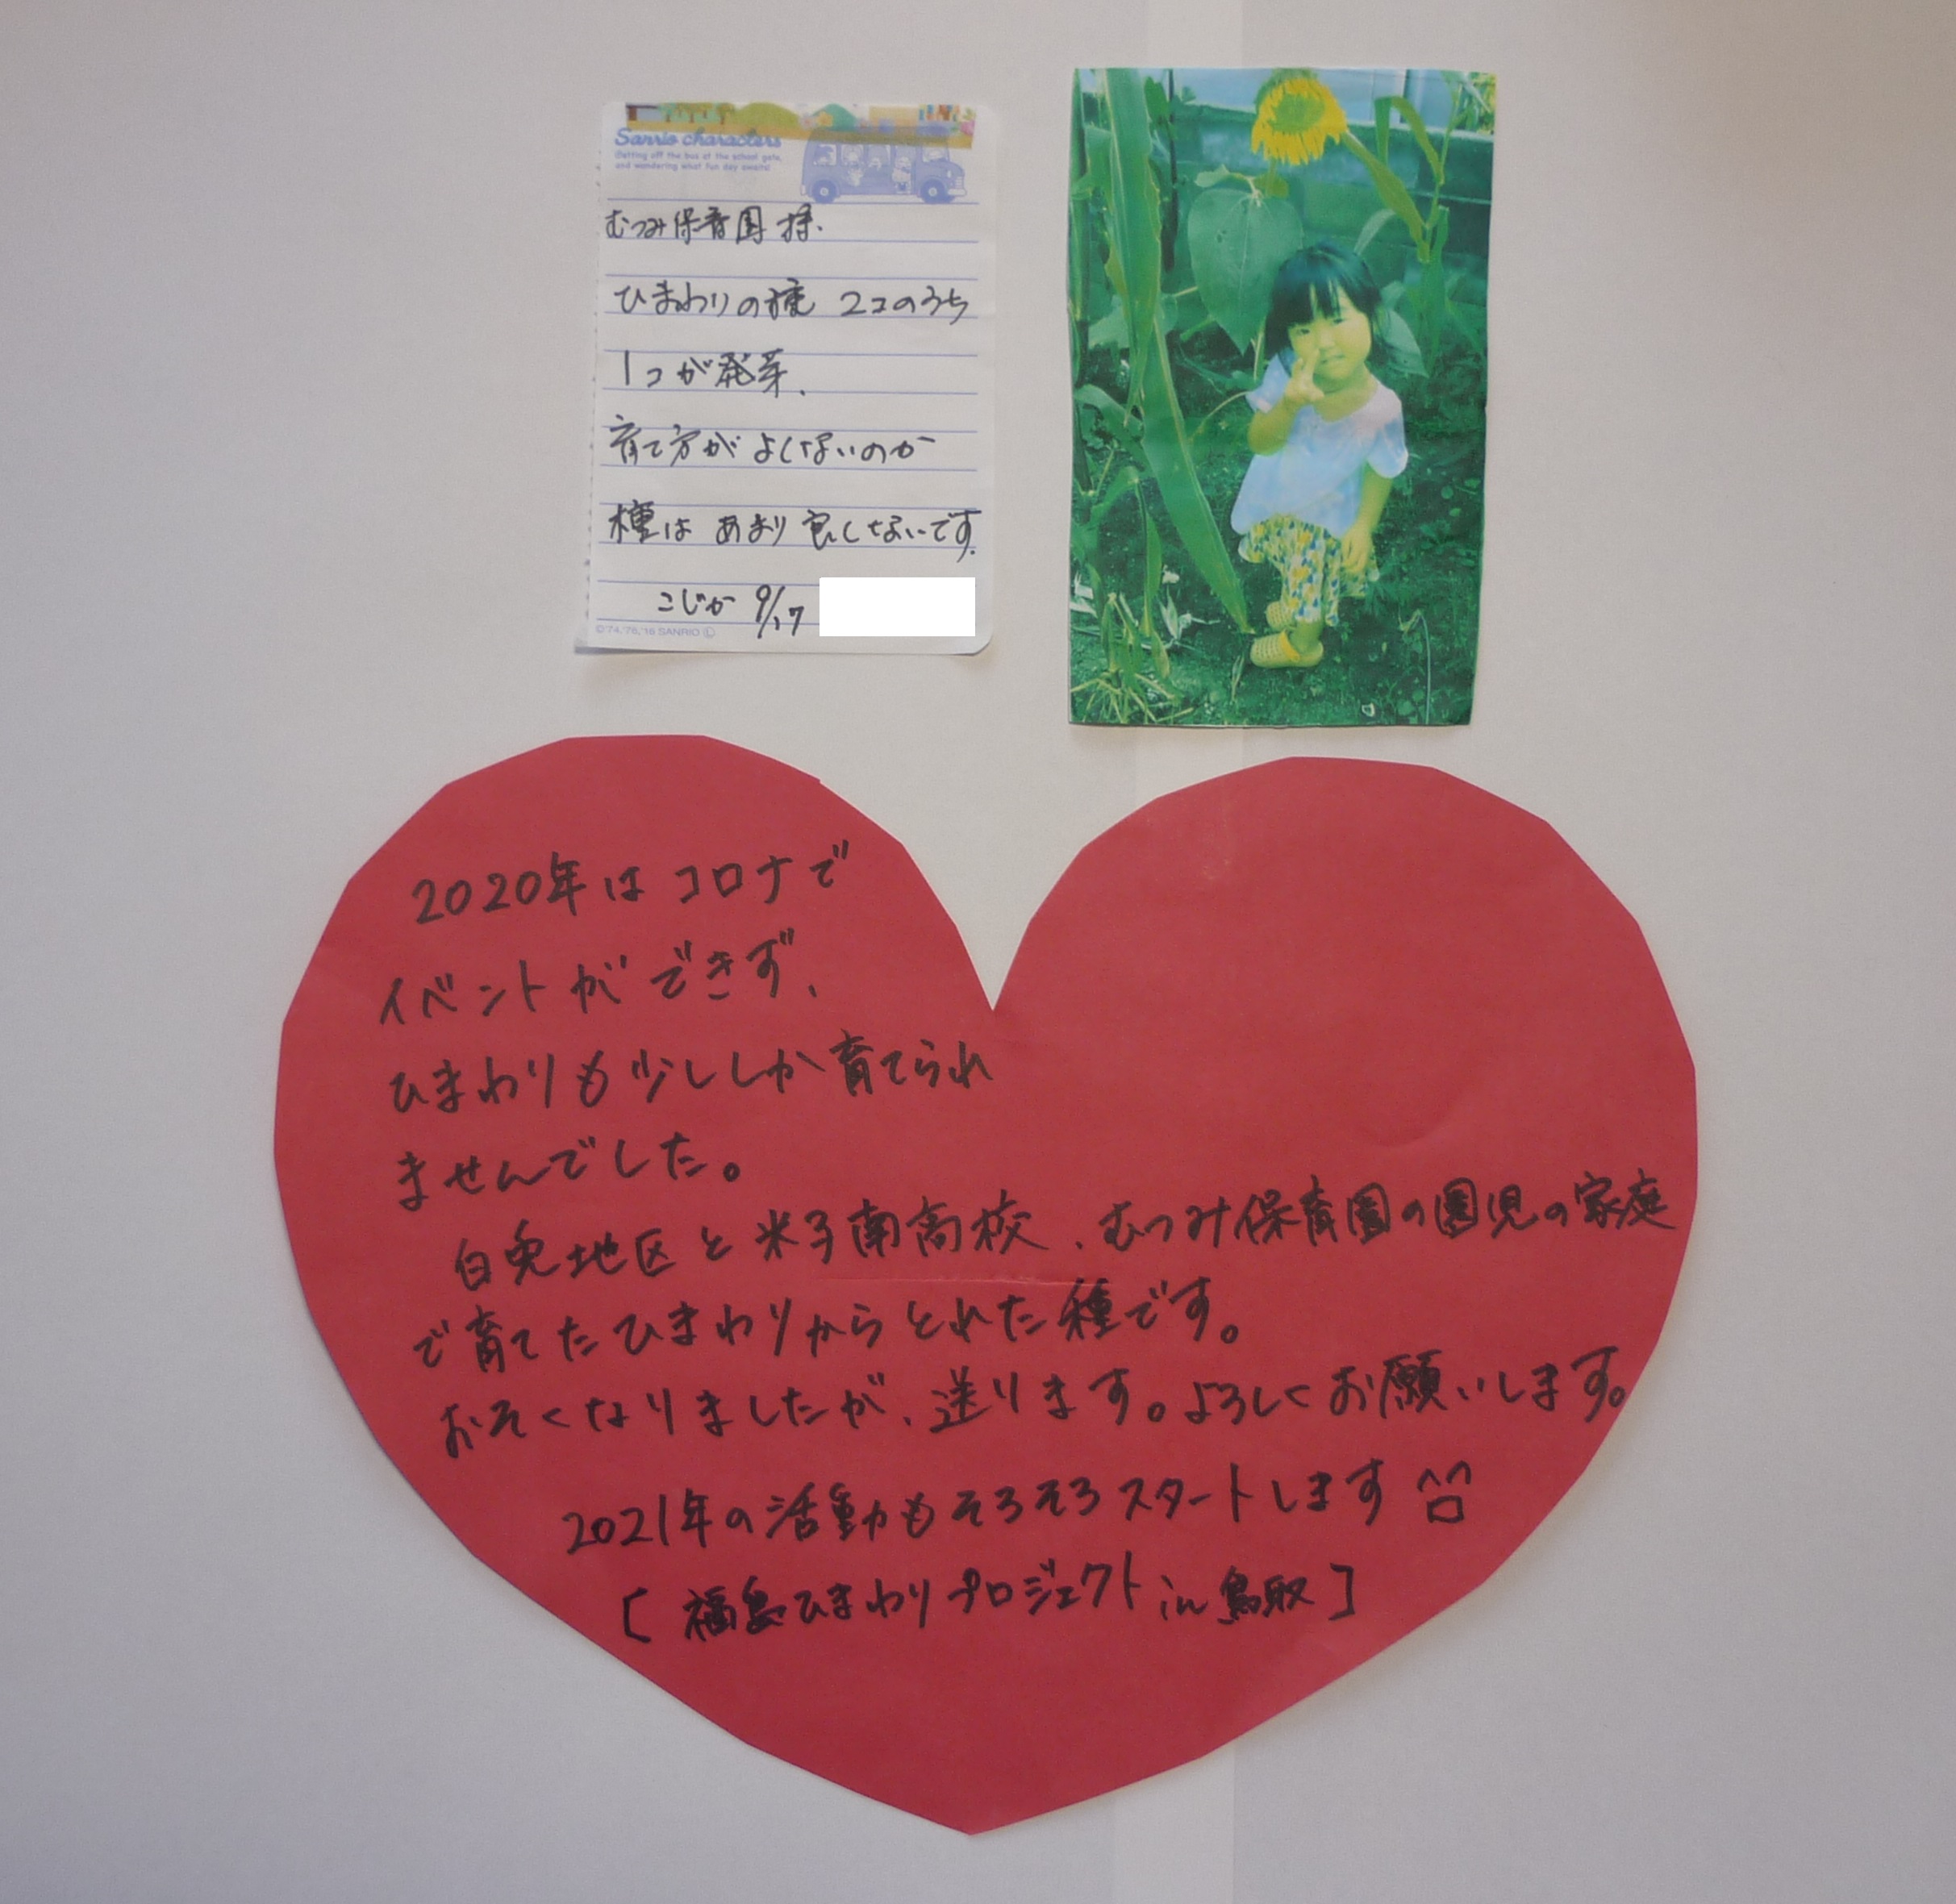 Sanrio characters
Getting off the bus at the school gate,
and wondering what fun day awaits!
むつみ保育園 様.
ひまわりの種 2コのうち
1コが発芽.
育て方が よくないのか
種は あまり 良くないです.
こじか 9/17
©'74,'76,'16 SANRIO Ⓛ
2020年は コロナで
イベントが できず、
ひまわりも少ししか育てられ
ませんでした。
白兎地区と米子南高校、むつみ保育園の園児の家庭
で育てたひまわりからとれた種です。
おそくなりましたが、送ります。よろしくお願いします。
2021年の活動もそろそろスタートします ^^
[ 福島ひまわりプロジェクト in 鳥取 ]